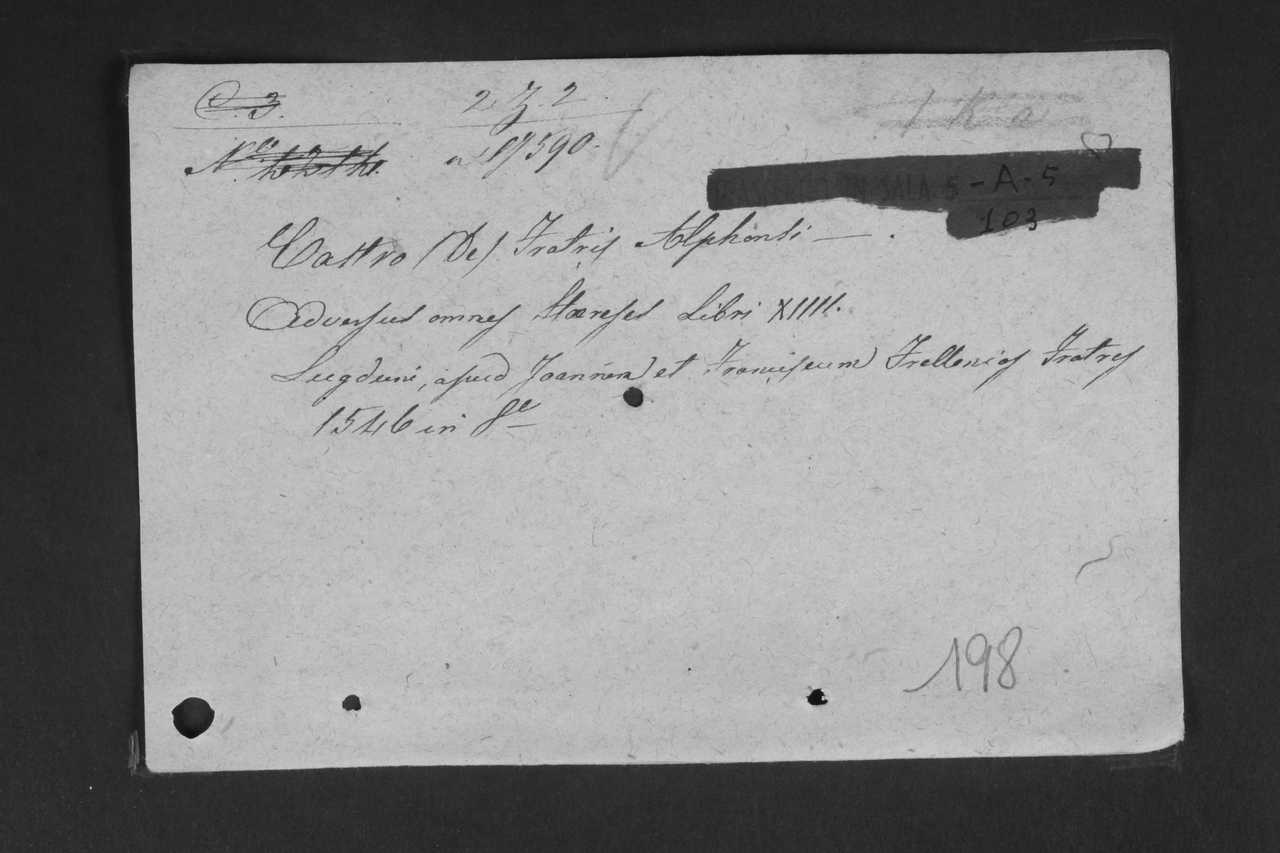 C. 3.
2. Z. 2
1 K a
N.ri
n 17590.
SALA 5 - A - 5
103
Castro (De) Fratris Alphonsi — .
Adversus omnes Hæreses Libri XIIII.
Lugduni, apud Joannem et Franciscum Frellonios Fratres
1546 in 8º
198